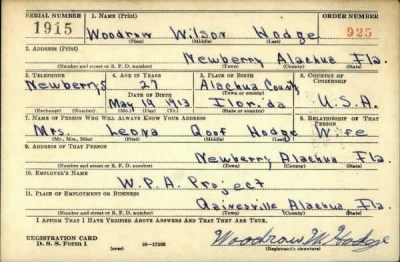 SERIAL NUMBER 1. NAME (Print) ORDER NUMBER
1915 Woodrow Wilson Hodge 925
(First) (Middle) (Last)
2. ADDRESS (Print)
Newberry Alachua Fla.
(Number and street or R. F. D. number) (Town) (County) (State)
3. TELEPHONE 4. AGE IN YEARS 5. PLACE OF BIRTH 6. COUNTRY OF CITIZENSHIP
Newberry 5 27 Alachua County
DATE OF BIRTH (Town or county)
May 19 1913 Florida U.S.A.
(Exchange) (Number) (Mo.) (Day) (Yr.) (State or country)
7. NAME OF PERSON WHO WILL ALWAYS KNOW YOUR ADDRESS 8. RELATIONSHIP OF THAT PERSON
Mrs. Leona Hodge Wife
(Mr., Mrs., Miss) (First) (Middle) (Last)
9. ADDRESS OF THAT PERSON
Newberry Alachua Fla.
(Number and street or R. F. D. number) (Town) (County) (State)
10. EMPLOYER'S NAME
W.P.A. Project
11. PLACE OF EMPLOYMENT OR BUSINESS
Gainesville Alachua Fla.
(Number and street or R. F. D. number) (Town) (County) (State)
I AFFIRM THAT I HAVE VERIFIED ABOVE ANSWERS AND THAT THEY ARE TRUE.
REGISTRATION CARD
D. S. S. Form 1 (over) 16—17105 Woodrow W. Hodge
(Registrant's signature)